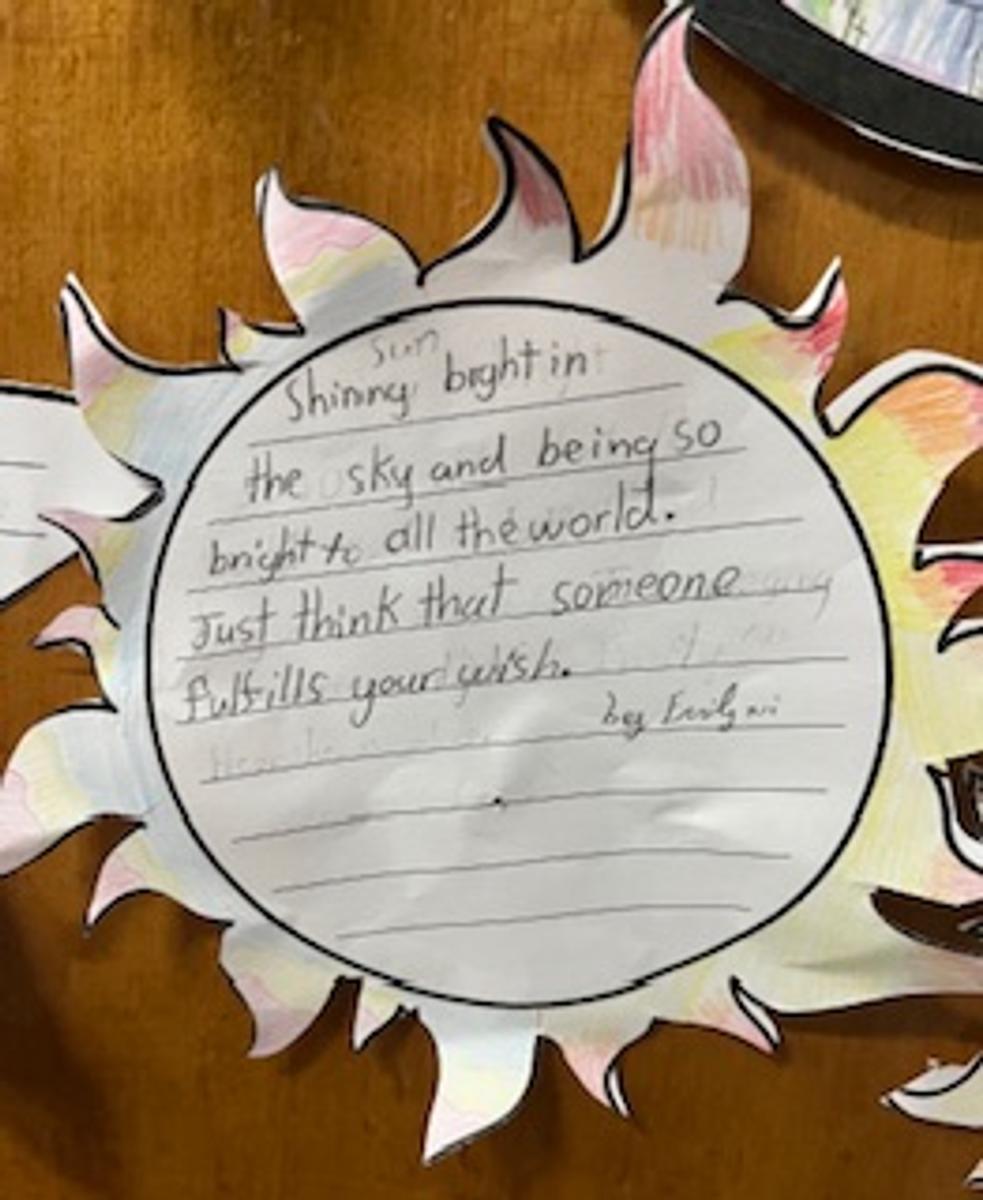 Sun
Shinny bright in
the sky and being so
bright to all the world.
Just think that someone
fulfills your wish.
by